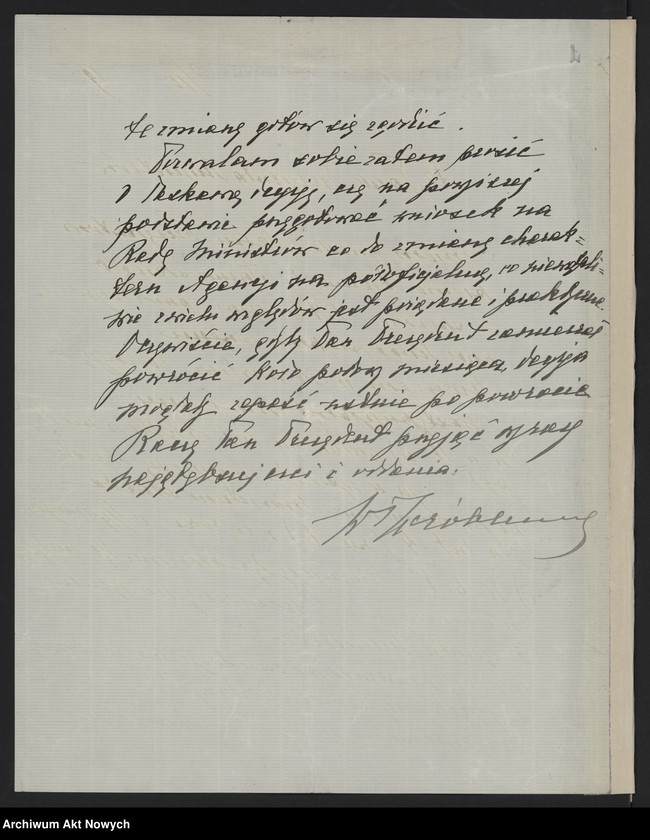 tę zmianę gotów się zgodzić.
Pozwalam sobie zatem prosić
o łaskawą decyzję, czy na powyższej
podstawie przygotować wniosek na
Radę Ministrów co do zmiany charak=
teru Agencji na półoficjalną, co niewątpli=
wie z wielu względów jest pożądane i praktyczne.
Oczywiście, gdyby Pan Prezydent zamierzał
powrócić koło połowy miesiąca, decyzja
mogłaby zapaść ustnie po powrocie
Raczy Pan Prezydent przyjąć wyrazy
najgłębszej czci i oddania.
1
Archiwum Akt Nowych